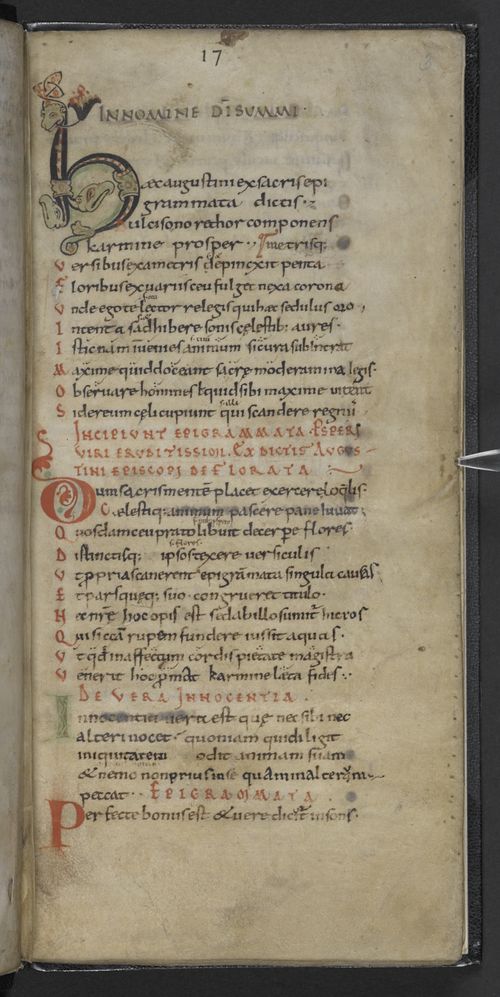 17
IN NOMINE DI SUMMI
Haec augustini ex sacris epi
grammata dictis
ulcisono rethor componens
karmine prosper
Versibus exametris depinxit penta
Floribus ex variis ceu fulget nexa corona
Vnde ego te lector relegis qui haec sedulus oro
Intenta adhibere sonis celestib: aures
Istic nam invenies animum si cura subintrat
Maxime quid doceant sacrae moderamina legis
Observare homines & quid sibi maxime vitent
Sidereum celi cupiunt qui scandere regnū
INCIPIUNT EPIGRAMMATA PSPERI
VIRI ERUDITISSIMI. EX DICTIS AUGUS
TINI EPISCOPI DEFLORATA
Dum sacris mentem placet exercere loqlis
Caelestiq: animum pascere pane iuvat
Quosdam ceu prato libuit decerpe flores
Distinctisq; ipsos texere versiculis
Vt ppria canerent epigrāmata singula causas
Et pars quęq; suo congrueret titulo
Nec nrae hoc opis est sed ab illo sumit hic ros
Qui siccā rupem fundere iussit aquas
Vt qd in affectum cordis pietate magistra
Venerit hoc pmat karmine laeta fides
DE VERA INNOCENTIA
Innocentia vera est quae nec sibi nec
alteri nocet quoniam qui diligit
iniquitatem odit animam suam
& nemo non prius in se quam in alterū
peccat. EPIGRAMMATA
Perfecte bonus est & vere dicit insons